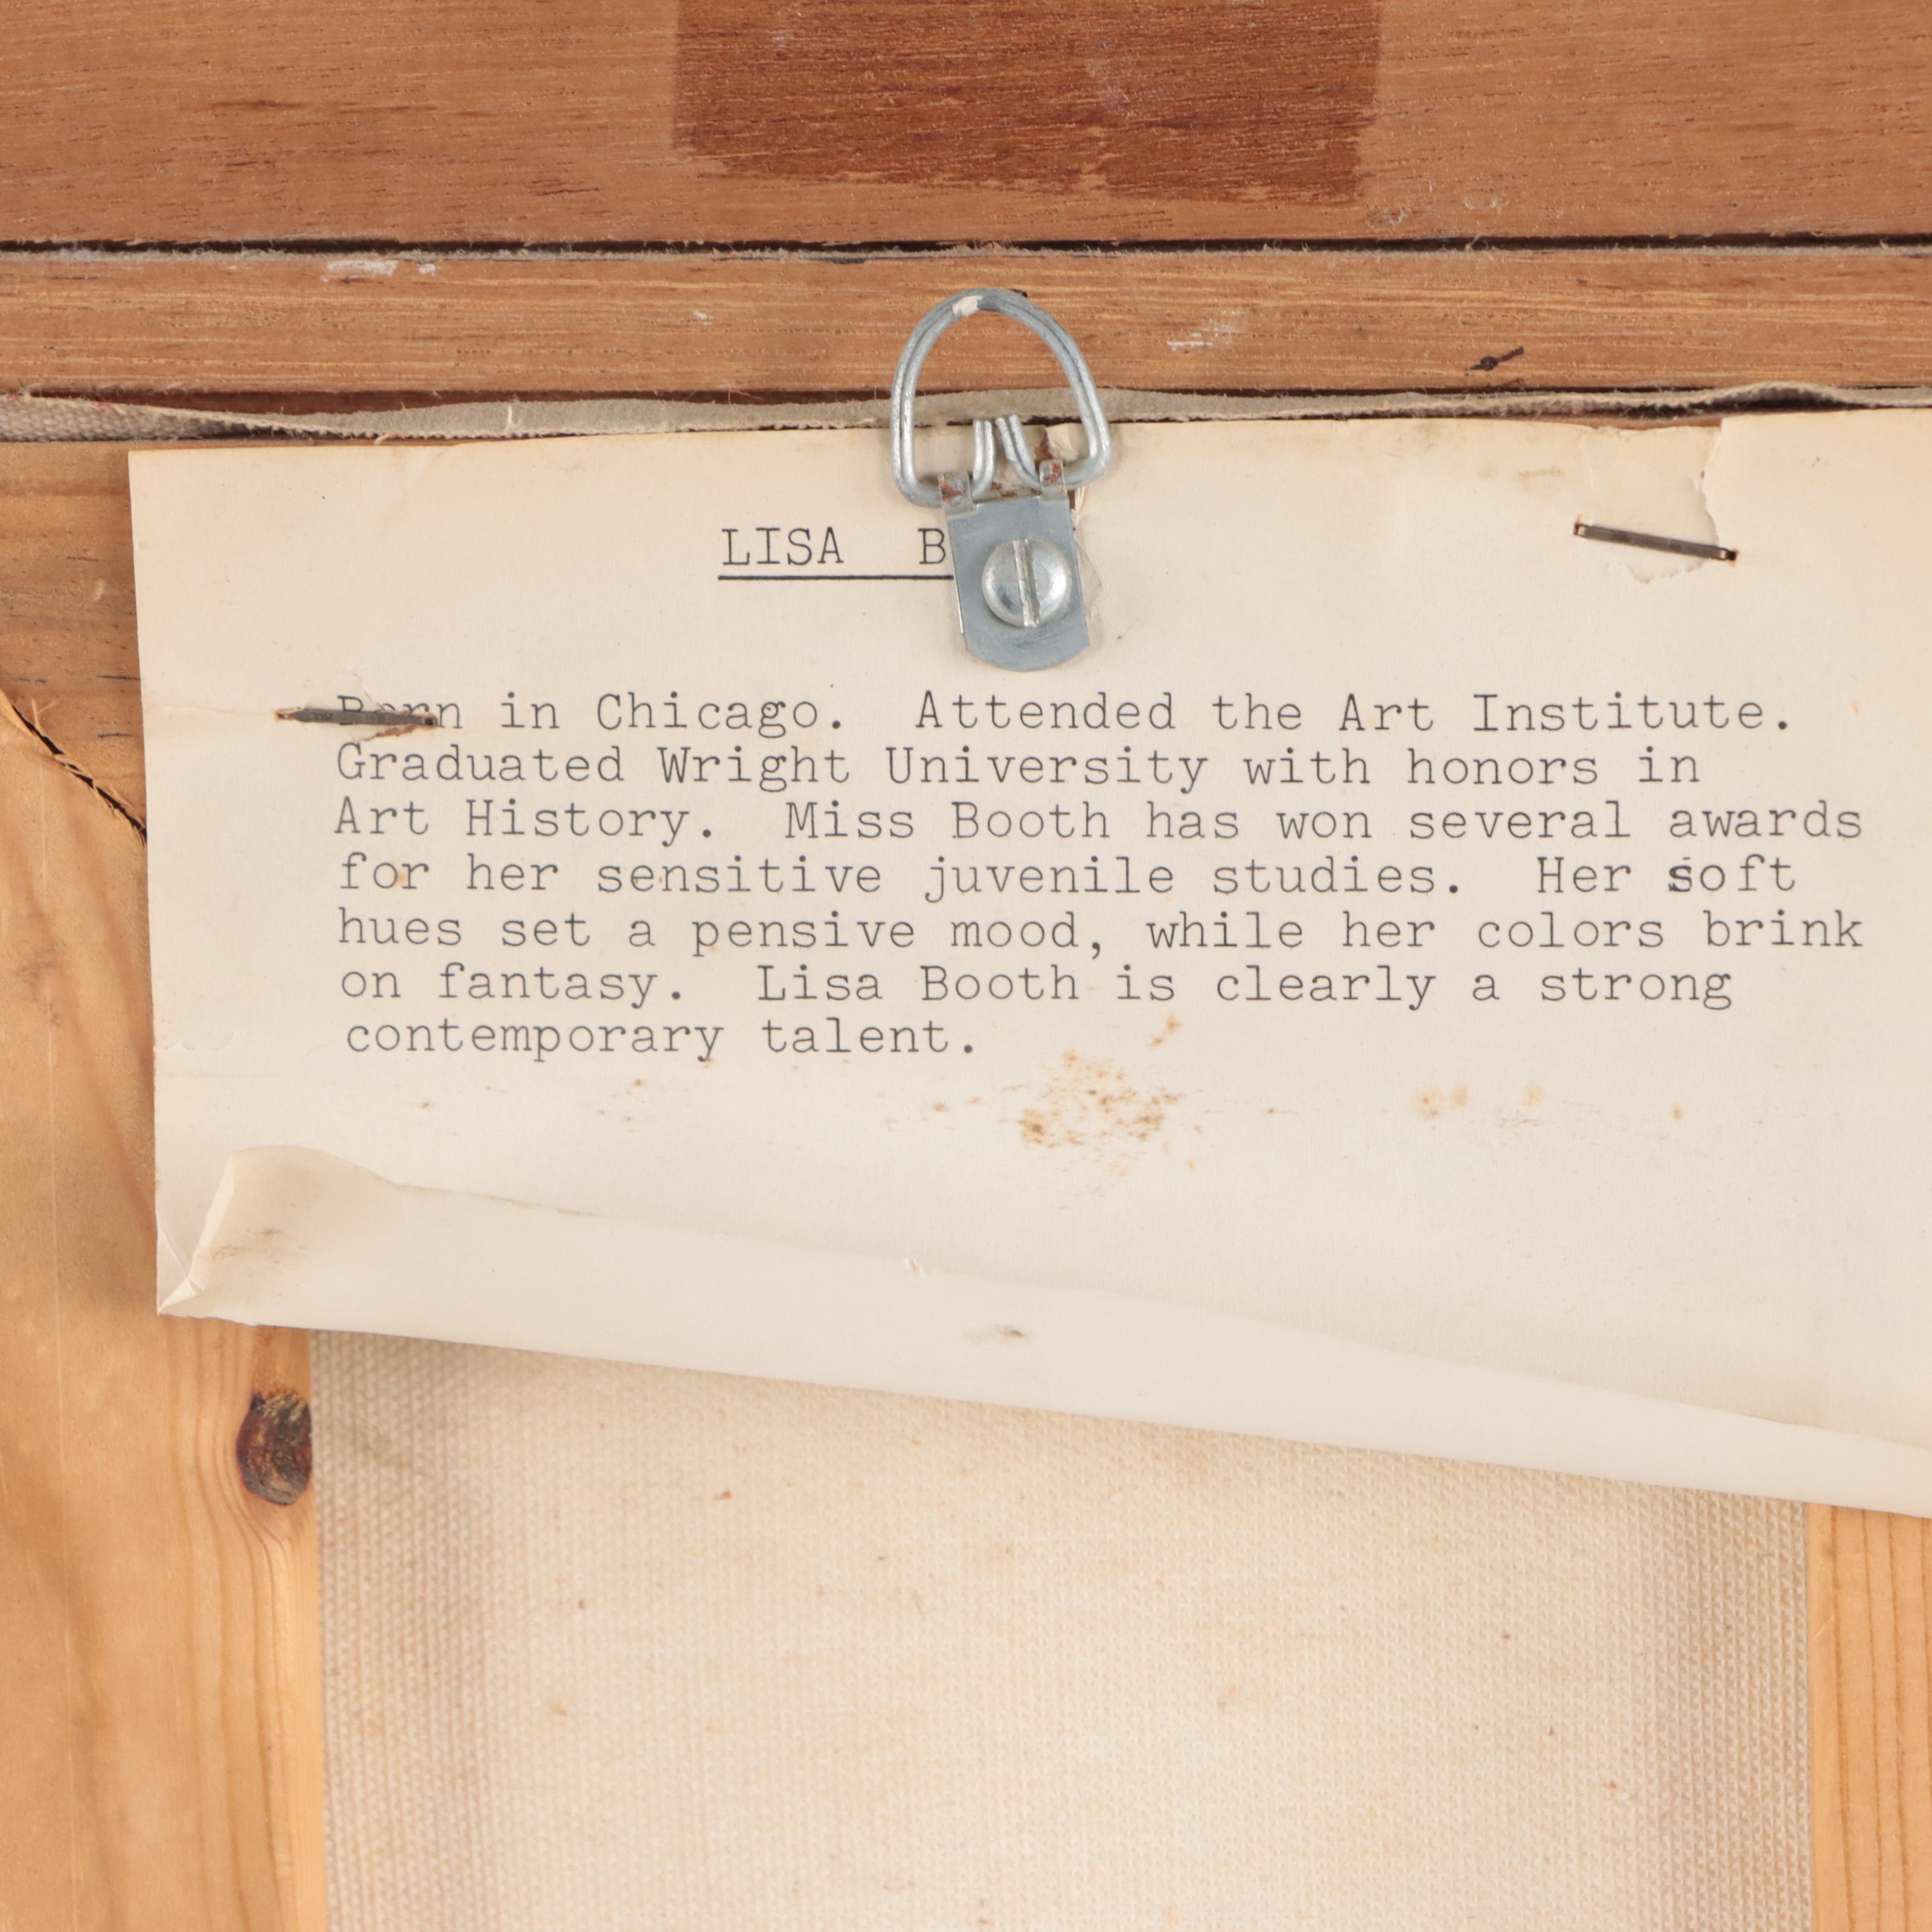 LISA B
Born in Chicago. Attended the Art Institute.
Graduated Wright University with honors in
Art History. Miss Booth has won several awards
for her sensitive juvenile studies. Her soft
hues set a pensive mood, while her colors brink
on fantasy. Lisa Booth is clearly a strong
contemporary talent.